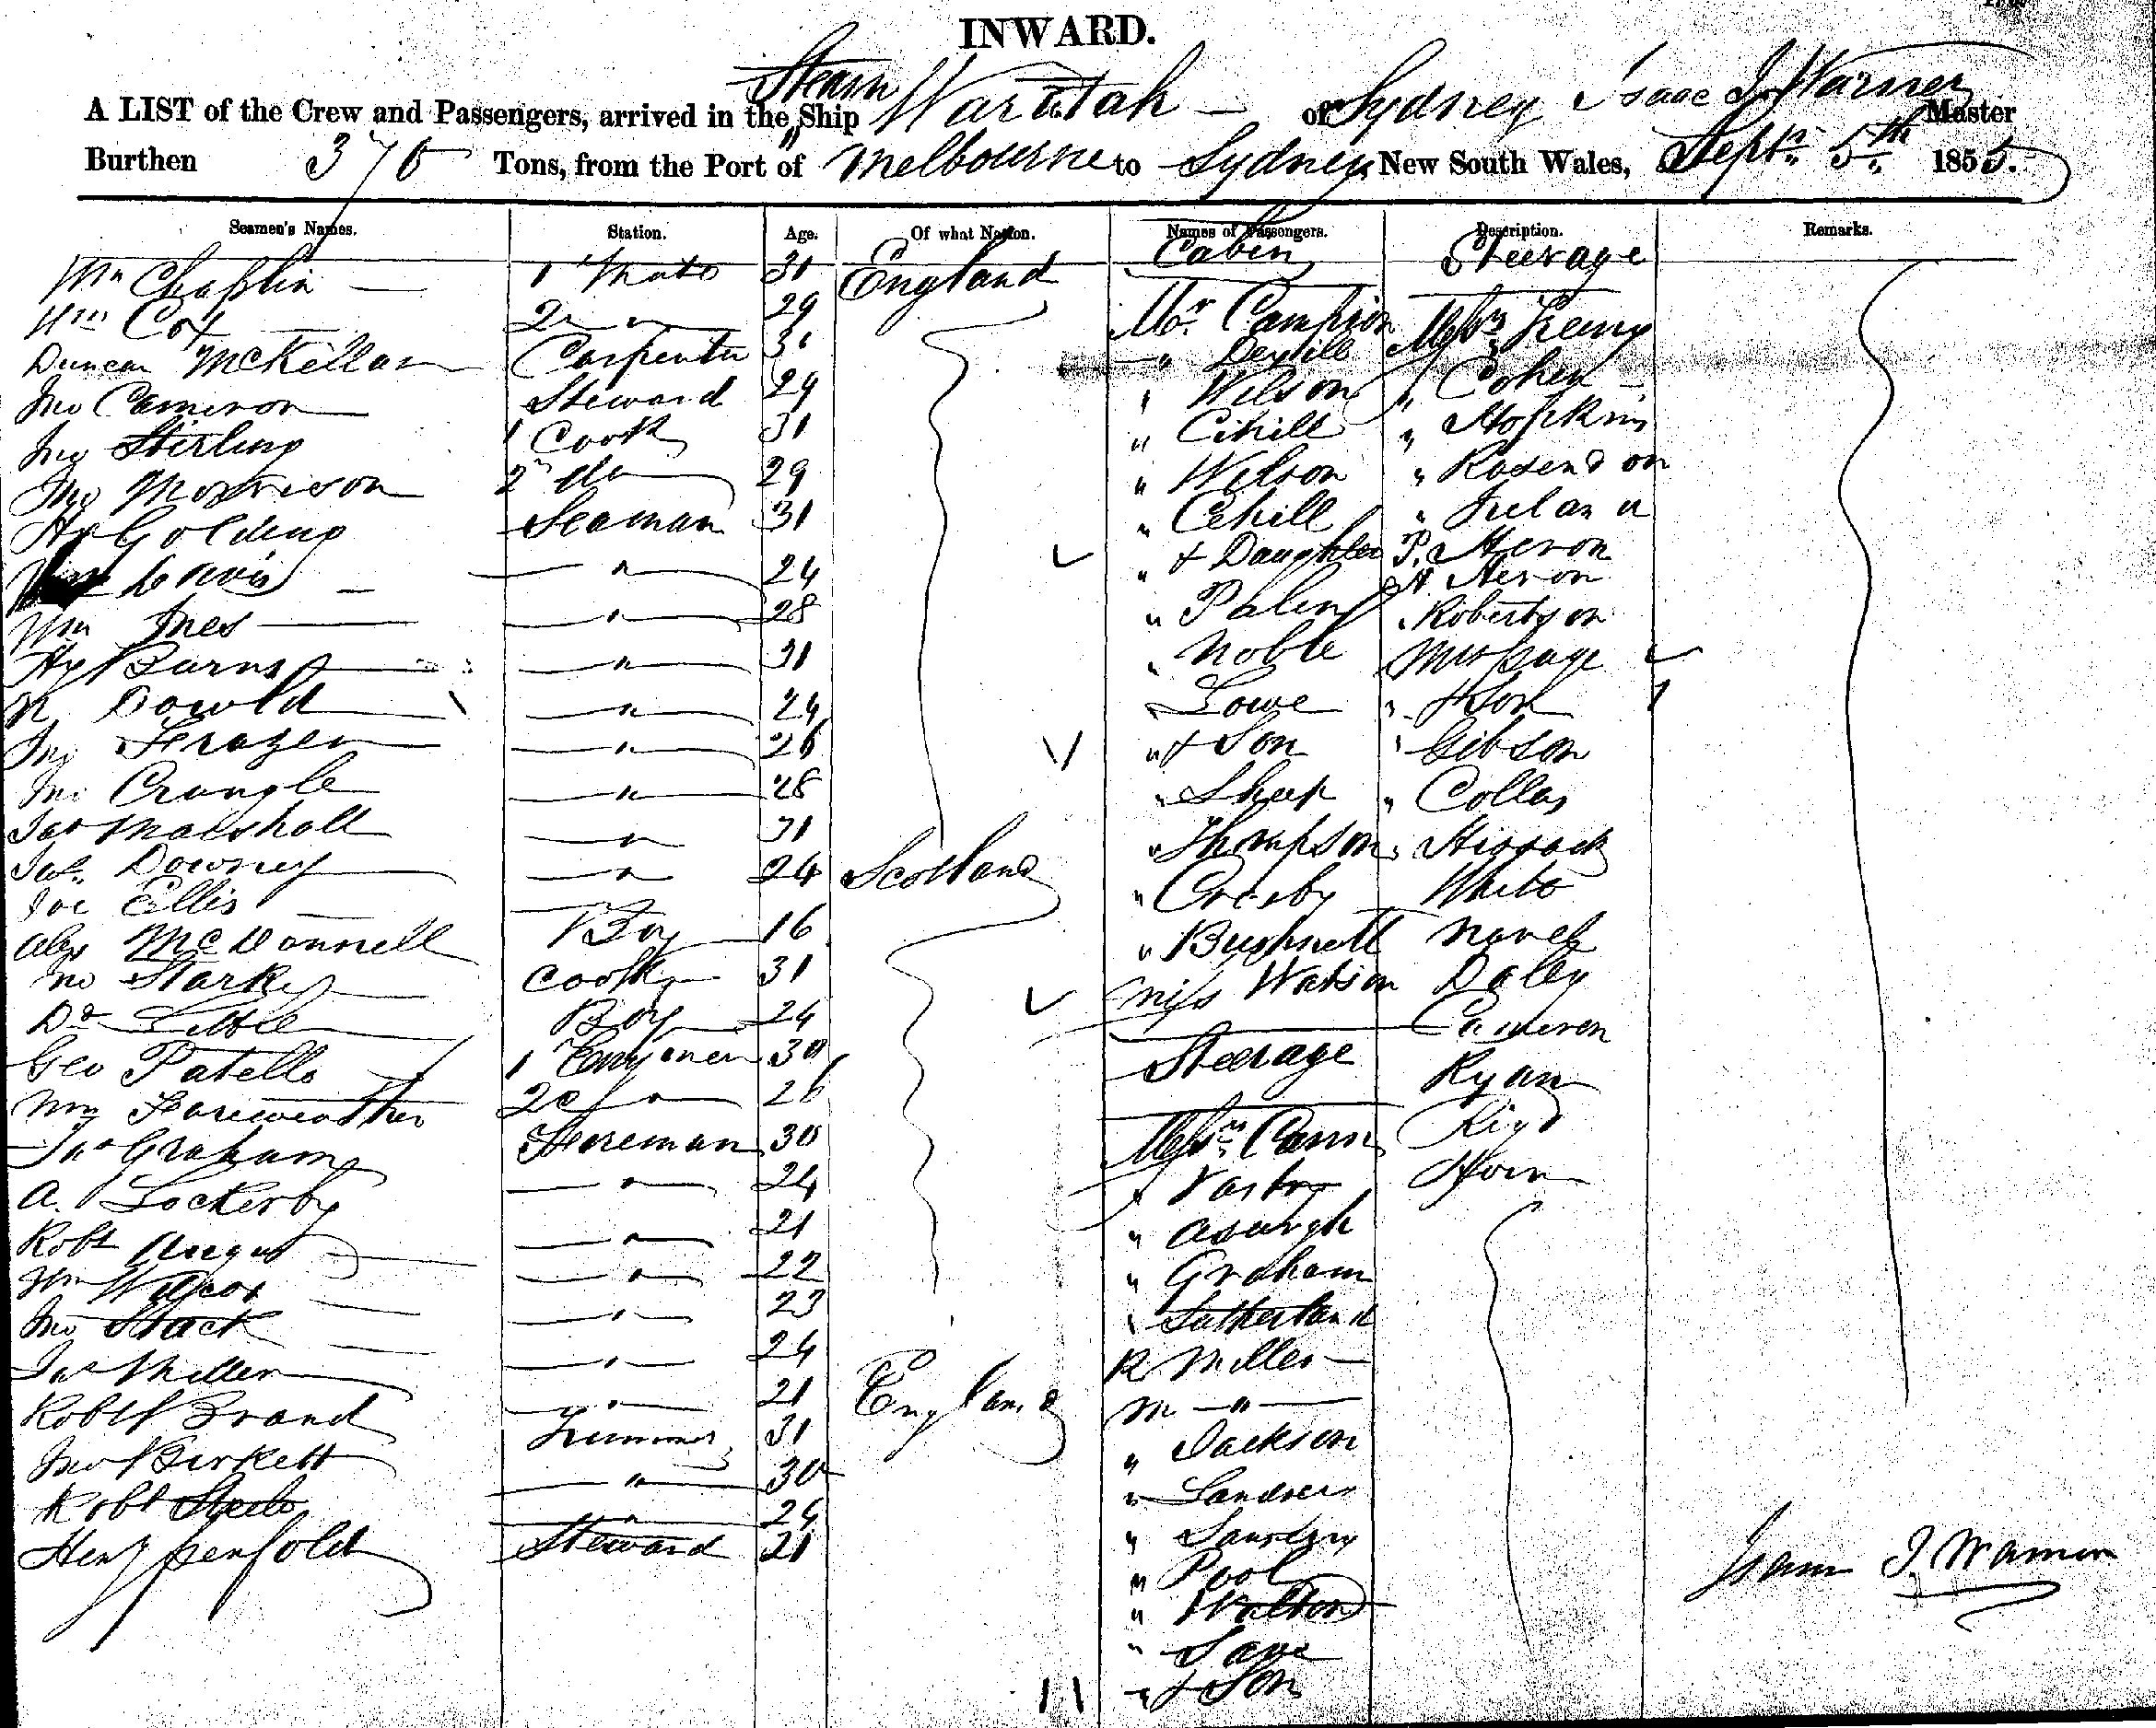 INWARD.
A LIST of the Crew and Passengers, arrived in the Steam Ship Waratah of Sydney Isaac J. Warner Master
Burthen 370 Tons, from the Port of Melbourne to Sydney New South Wales, Septr. 5th 1855.
Seamen's Names. Station. Age. Of what Nation. Names of Passengers. Description. Remarks.
Cabin Steerage
Wm Chaplin 1 Mate 31 England
Wm Cox 2 " 29 Mr. Campion Messrs
Duncan McKellar Carpenter 31 "
Jno Cameron Steward 29 " Wilson " Cohen
Jno Stirling 1 Cook 31 " Cihill " Hopkins
Jno Morrison 2 do 29 " Wilson "
Hy Golding Seaman 31 " Cehill "
Davis " 24 " & Daughter P. Heron
Wm Ines " 28 " Paling H Heron
Hy Burns " 31 " Noble " Robertson
Dowld " 24 " Lowe " & Son
Jno Frazer " 26 " & Son " Gibson
Jno Crangle " 28 " Sharp " Collas
Jas Marshall " 31 " Thompson
Jas. Downey " 24 Scotland " Crosby White
Joe Ellis
Alex McDonnell Boy 16 " Bushnell
Jno Starkey Cook 31 Miss Watson Daley
Dd Little Boy 24 Cameron
Geo Patello 1 Engineer 30 Steerage Ryan
Wm Fareweather 2d " 26
Jas Graham Fireman 30 Messrs Cann Horn
A. Lockerby " 24 "
Robt Angus " 21 "
Wm Wilcox " 22 " Graham
Jno Stack " 23 " Sutherland
Jas Miller " 24 R Miller
Robt Brand " 21 England M "
Jno Birkett Trimmer 31 " Jackson
Robt Steele " 30 "
" 24 "
Heny Penfold Steward 21 " Pool
" Walton
"
" & Son
Isaac J. Warner